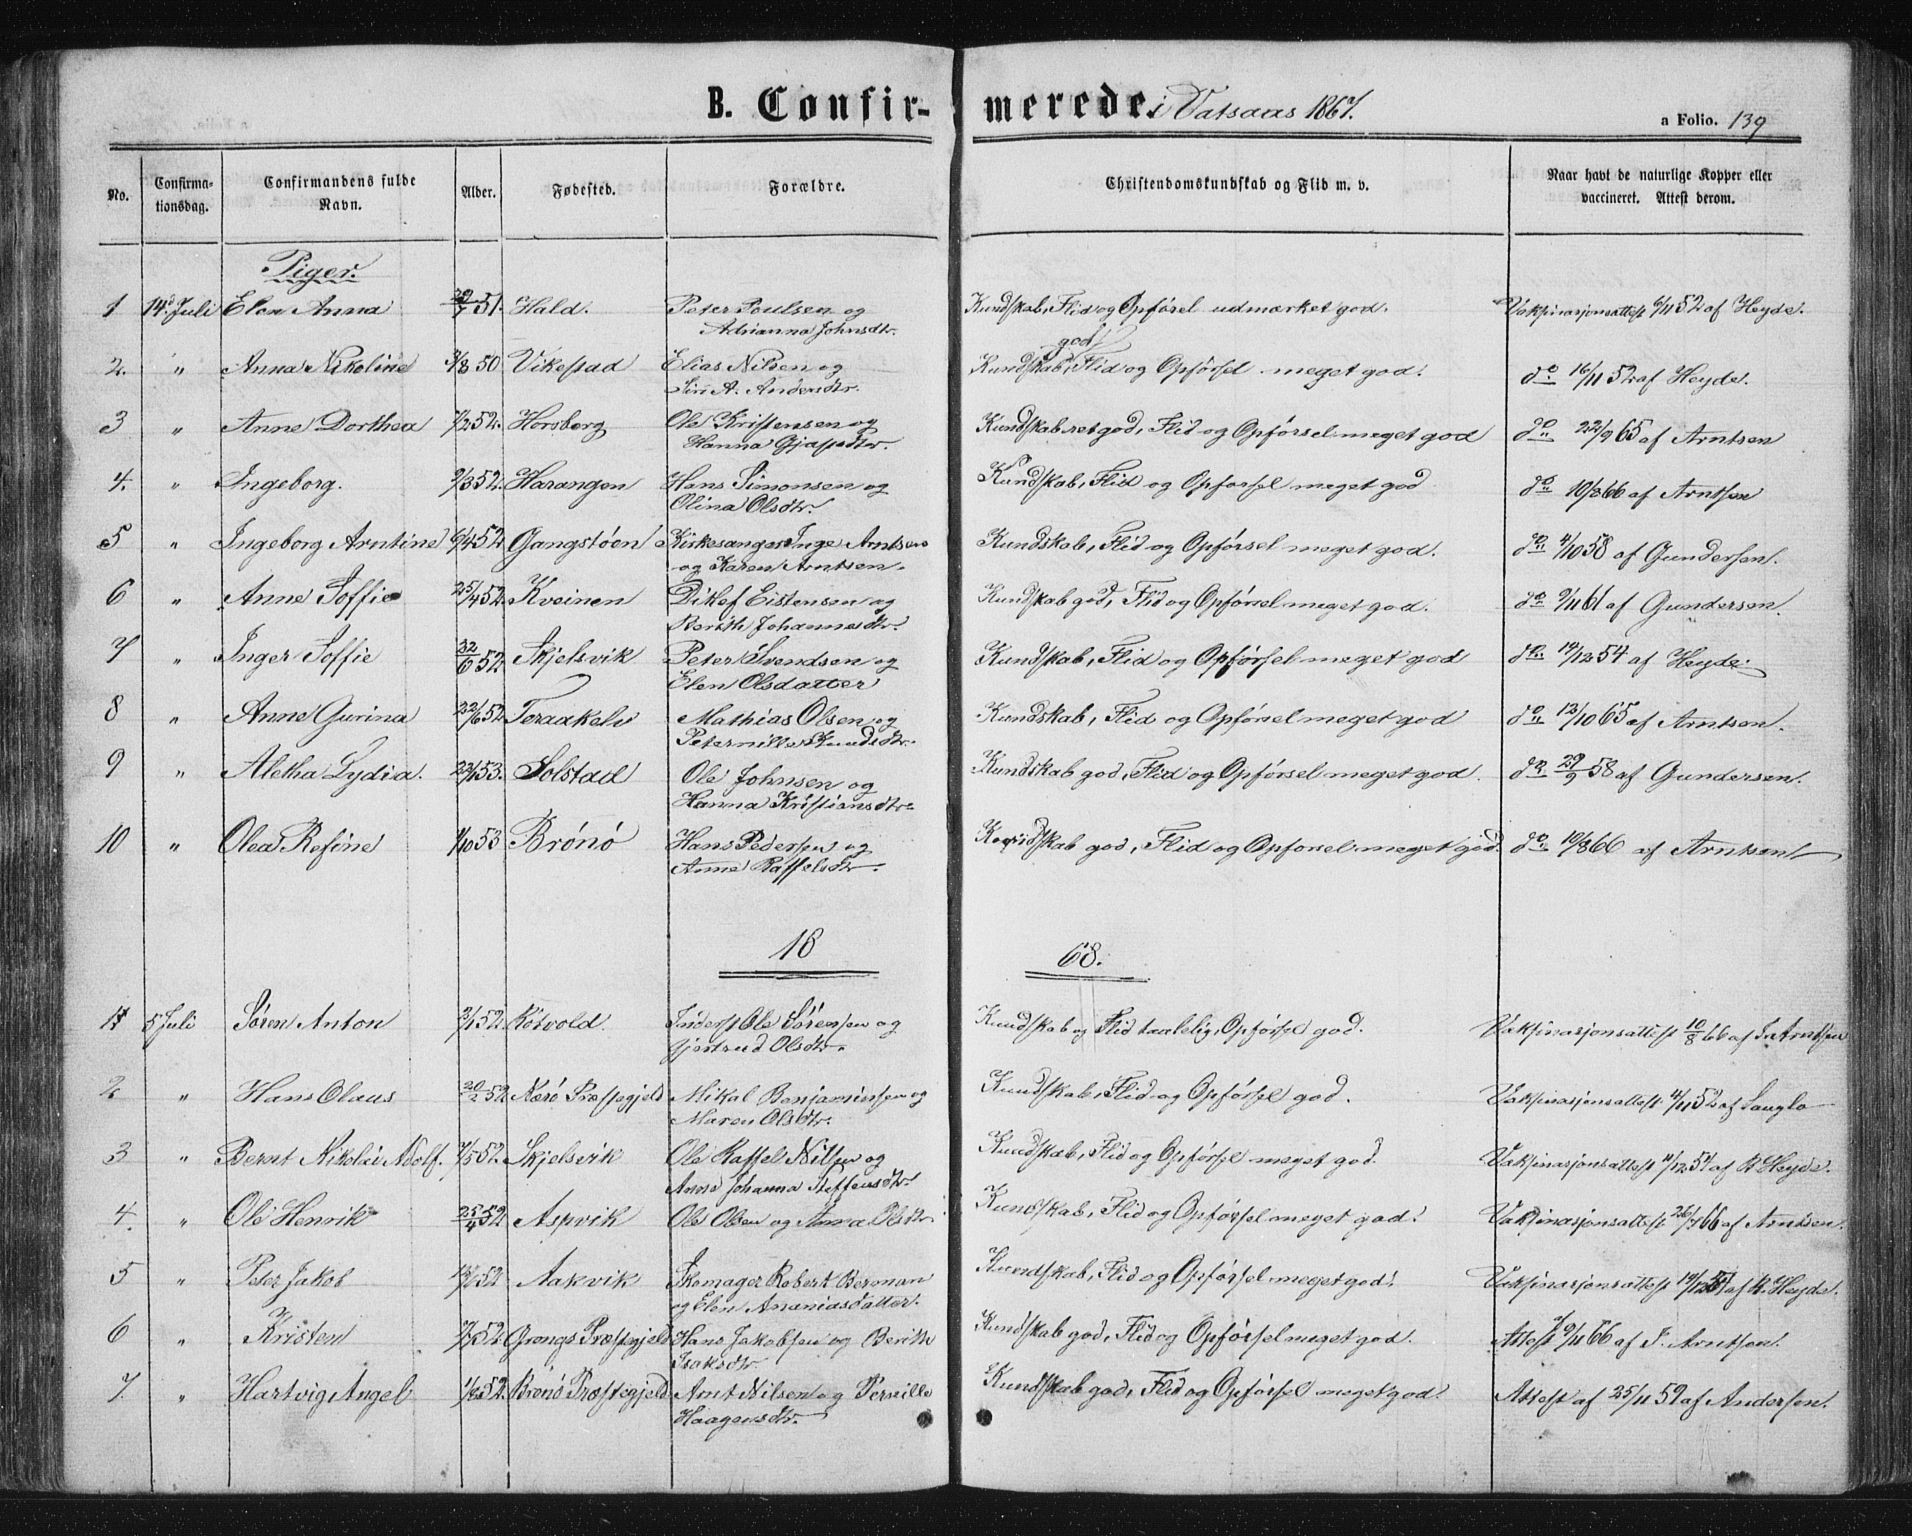 B. Confirmerede i Vatsaas 1867. a Folio. 139
No. Confirmationsdag. Confirmandens fulde Navn. Alder. Fødested. Forældre. Christendomskundskab og Flid m. v. Naar havt de naturlige Kopper eller vaccineret. Attest derom.
Piger.
1 14d Juli Elen Anna 29/7 51. Hald. Peter Poulsen og Kundskab, Flid og Opførsel udmærket god. Vaksinasjonsattest 6/11 52 af Heyde.
Adrianna Johnsdtr.
god
2. " Anna Nikoline 3/8 50 Vikestad Elias Nilsen og Kundskab, Flid og Opførsel meget god. do 16/11 52 af Heyde.
Siri A. Andersdtr.
3 " Anne Dorthea 7/2 52. Horsberg Ole Kristensen og Kundskab ret god, Flid og Opførsel meget god do 22/9 65 af Arntsen
Hanna
4. " Ingeborg. 9/3 52. Harangen Hans Simonsen og Kundskab, Flid og Opførsel meget god do 10/8 66 af Arntsen
Olina Olsdtr.
5 " Ingeborg Arntine 6/4 52 Gangstøen Kirkesanger Inge Arntsen Kundskab, Flid og Opførsel meget god. do 4/10 58 af Gundersen.
og Karen Arntsen.
6 " Anne Soffie 25/4 52. Kveinen Ditlef Eistensen og Kundskab god, Flid og Opførsel meget god. do 9/11 61 af Gundersen.
Berith Johannesdtr.
7 " Inger Soffie 52. Skjelsvik Peter Svendsen og Kundskab, Flid og Opførsel meget god do 14/12 54 af Heyde.
Elen Olsdatter
8 " Anne Gurina 22/6 52. Teraakelv Mathias Olsen og Kundskab, Flid og Opførsel meget god do 13/10 65 af Arntsen.
Peternille Knudsdtr.
9 " Aletha Lydia. 23/1 53. Solstad Ole Johnsen og Kundskab god, Flid og Opførsel meget god. do 29/9 58 af Gundersen.
Hanna Kristiansdtr.
10 " Olea Refine 1/10 53 Brønø Hans Pedersen og Kundskab god, Flid og Opførsel meget god. do 10/8 66 af Arntsen
Anne Raffelsdtr.
18 68.
1 5 Juli Søren Anton 2/1 52. Kötvold. Inderst Ole Sørensen og Kundskab og Flid taalelig, Opførsel god. Vaksinasjonsattest 10/8 66 af I. Arntsen
Gjertrud Olsdtr.
2 " Hans Olaus 20/2 52. Nærø Præstegjeld Mikal Benjaminsen og Kundskab, Flid og Opførsel god. Vaksinasjonsattest 4/11 52 af Langlo
Maren Olsdtr.
3 " Bernt Nikolai Adolf. 7/5 52. Skjelsvik Ole Raffel Nilsen og Kundskab, Flid og Opførsel meget god. Vaksinasjonsattest 11/12 54 af B. Heyde.
Anne Johanna Steffensdtr.
4. " Ole Henrik 25/4 52 Aspvik Ole Olsen og Anna Olsdtr. Kundskab, Flid og Opførsel meget god. Vaksinasjonsattest 26/7 66 af Arntsen.
5 " Peter Jakob 52 Aakvik Skomager Robert Beronan Kundskab, Flid og Opførsel meget god. Vaksinasjonsattest 14/12 54 af B. Heyde.
og Elen Ananiasdatter.
6 " Kristen 52. Grongs Præstegjeld Hans Jakobsen og Berith Kundskab god, Flid og Opførsel meget god. Attest 9/11 66 af I. Arntsen.
Isaksdtr.
7. " Hartvig Angel 52. Brønø Præstegjeld Arnt Nilsen og Pernille Kundskab god, Flid og Opførsel meget god. Attest af 25/11 59 af Andersen.
Haagensdtr.